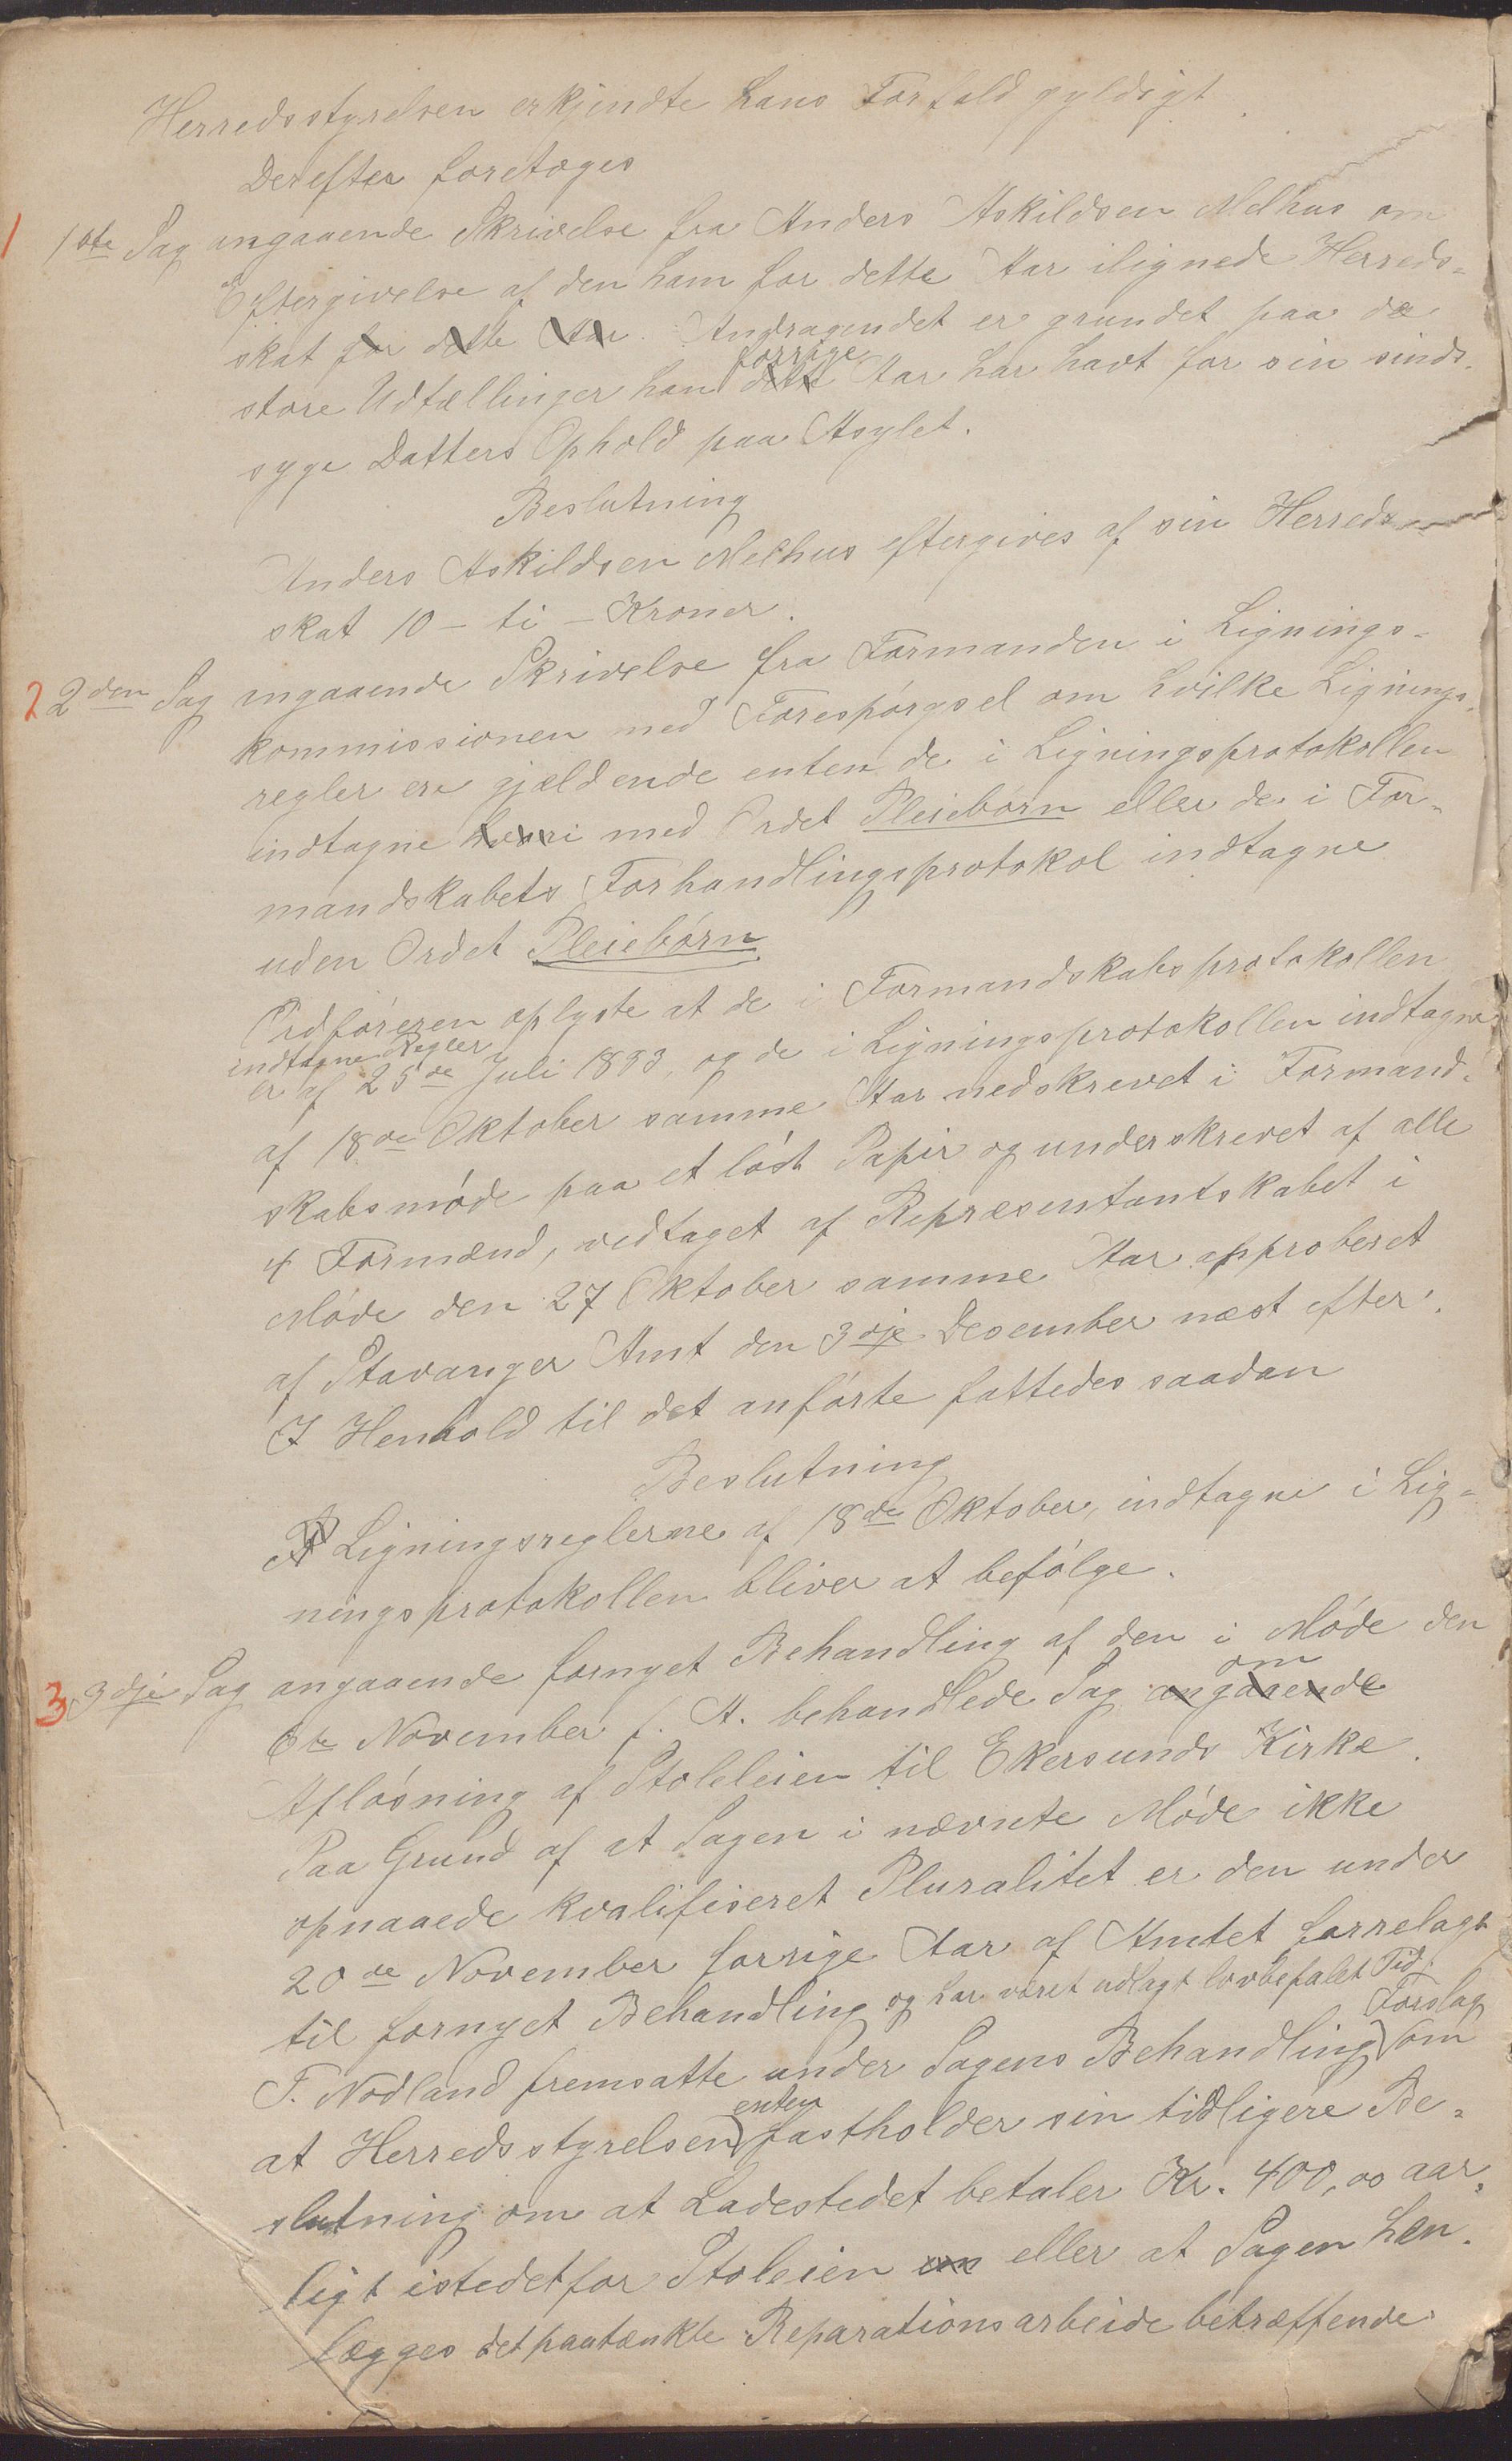 Herredsstyrelsen erkjendte hans Forfald gyldigt
Derefter foretoges
1 1ste Sag angaaende Skrivelse fra Anders Askildsen Melhus om
Eftergivelse af den ham for dette Aar ilignede Herreds-
skat for dette Aar. Andragendet er grundet paa de
store Udtællinger han dette forrige Aar har havt for sin sinds-
syge Datters Ophold paa Asylet.
Beslutning
Anders Askildsen Melhus eftergives af sin Herreds-
skat 10 – ti – Kroner.
2 2den Sag angaaende Skrivelse fra Formanden i Lignings-
kommissionen med Forespørgsel om hvilke Lignings-
regler er gjældende enten de i Ligningsprotokollen
indtagne med Ordet Pleiebørn eller de i For-
mandskabets Forhandlingsprotokol indtagne
uden Ordet Pleiebørn
Ordføreren oplyste at de i Formandskabsprotokollen
indtagne Regler
er af 25de Juli 1883, og de i Ligningsprotokollen indtagne
af 18de Oktober samme Aar nedskrevet i Formand-
skabsmøde paa et løst Papir og underskrevet af alle
4 Formænd, vedtaget af Repræsentantskabet i
Møde den 27 Oktober samme Aar approberet
af Stavanger Amt den 3dje Desember næst efter.
I Henhold til det anførte fattedes saadan
Beslutning
Ligningsreglerne af 18de Oktober, indtagne i Lig-
ningsprotokollen bliver at befølge.
3 3dje Sag angaaende fornyet Behandling af den i Møde den
6te November f. A. behandlede Sag angaaende om
Afløsning af Stoleleien til Ekersunds Kirke.
Paa Grund af at Sagen i nævnte Møde ikke
opnaaede kvalifiseret Pluralitet er den under
20de November forrige Aar af Amtet forrelagt
til fornyet Behandling og har været udlagt lovbefalet Tid.
T. Nodland fremsatte under Sagens Behandling Forslag om
at Herredsstyrelsen enten fastholder sin tidligere Be-
slutning om at Ladestedet betaler Kr. 400,00 aar-
ligt istedetfor Stoleien eller at Sagen hen-
lægges det paatænkte Reparationsarbeide betræffende